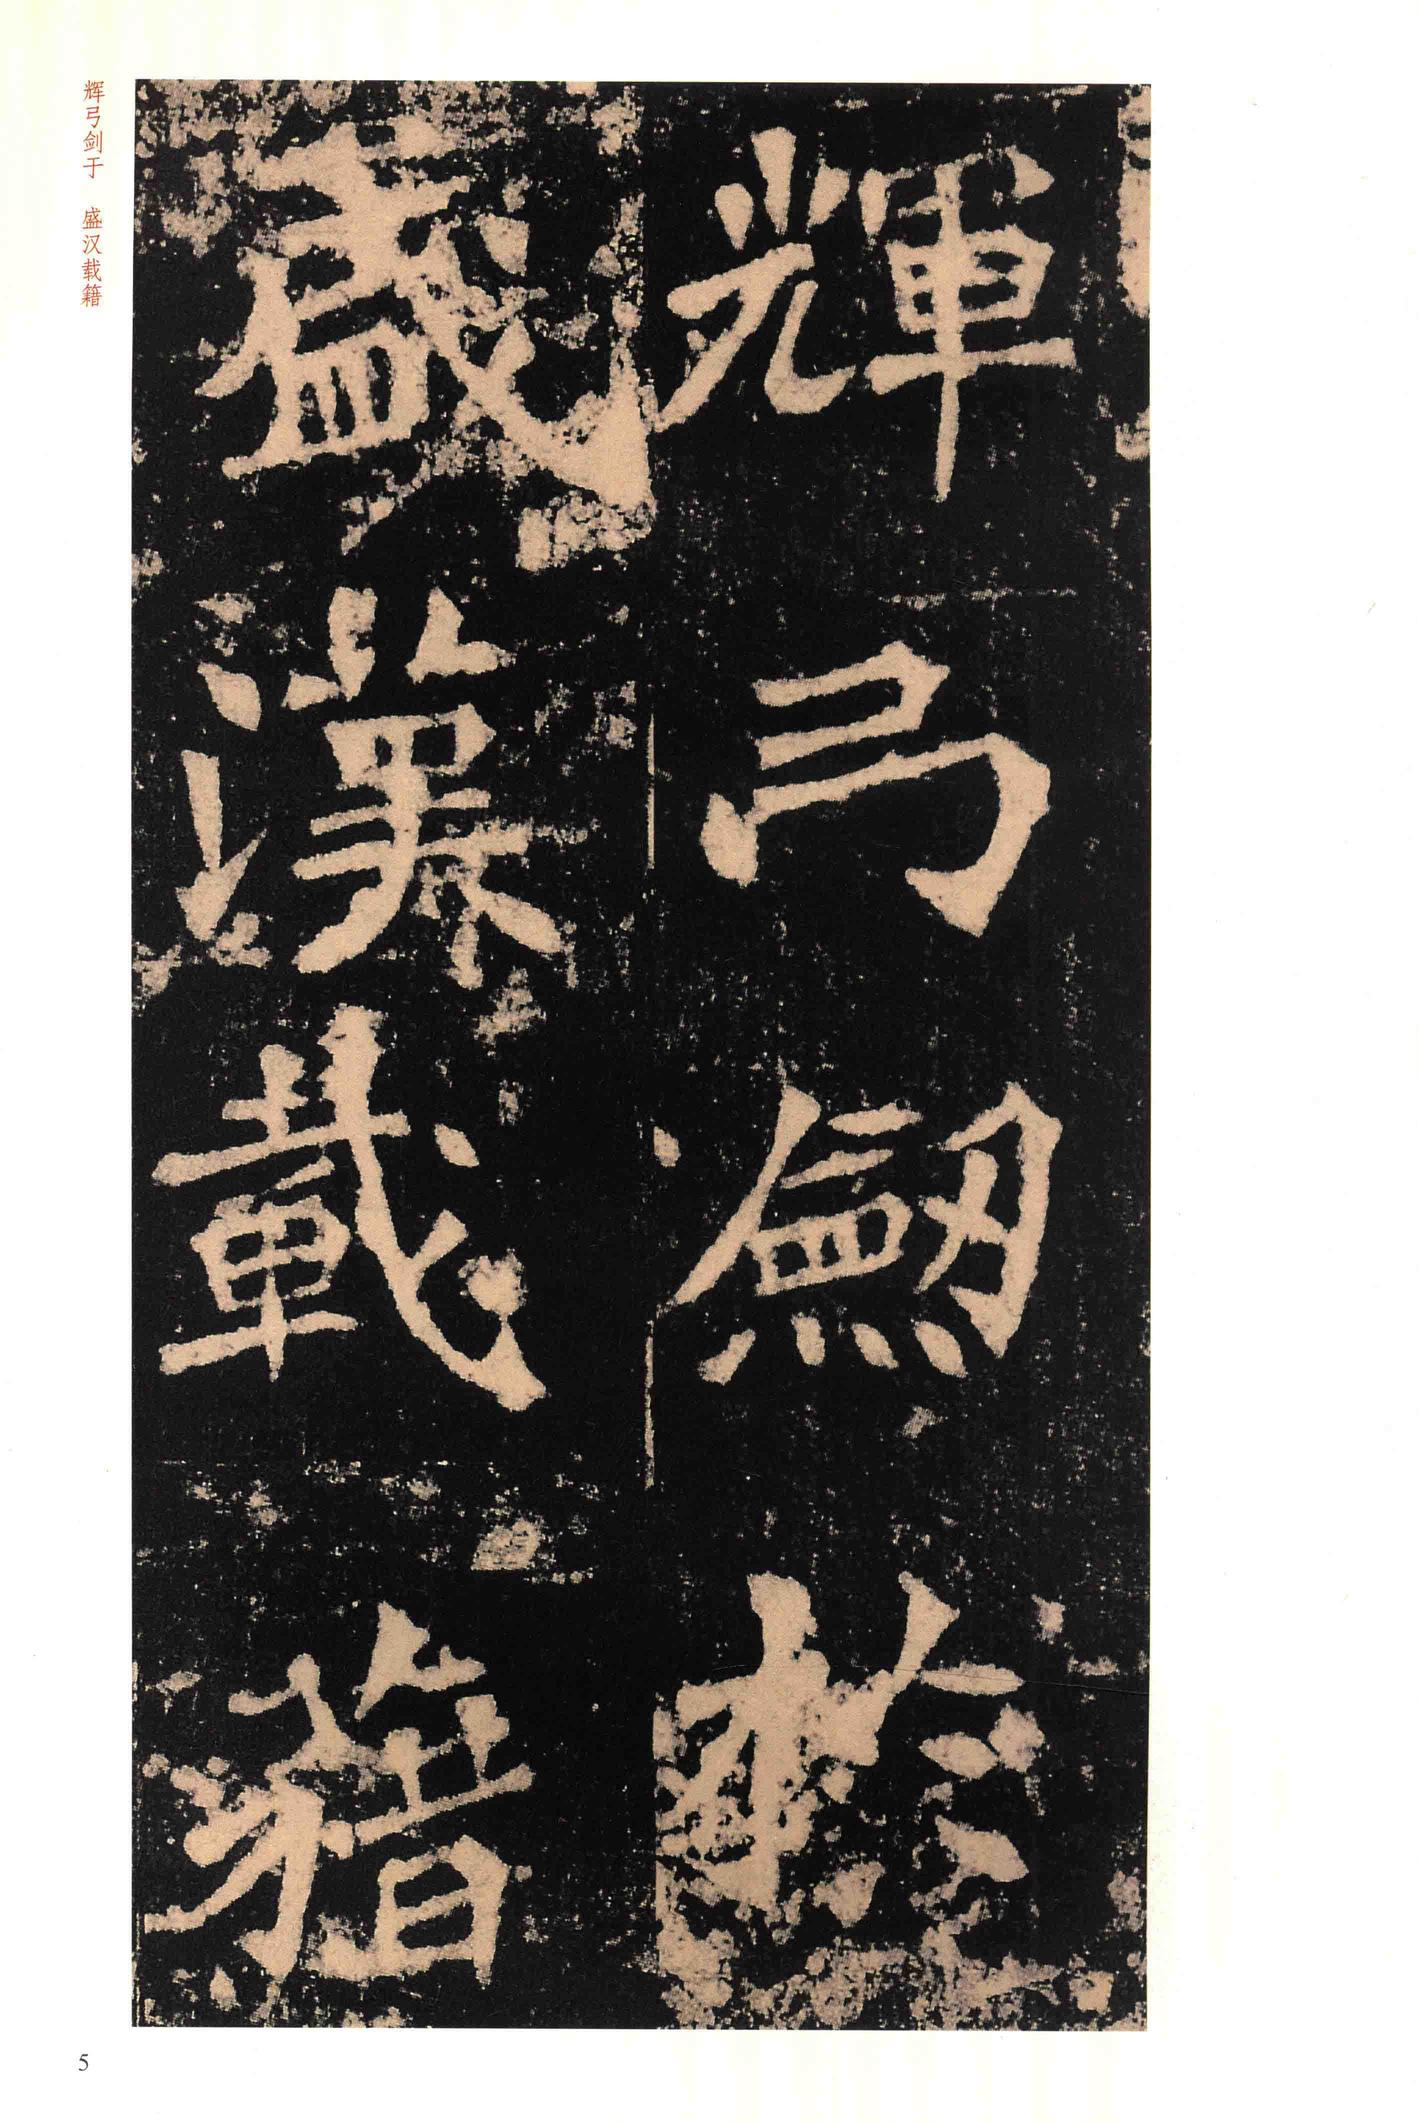 輝弓劒於
盛漢載籍
辉弓剑于 盛汉载籍
5